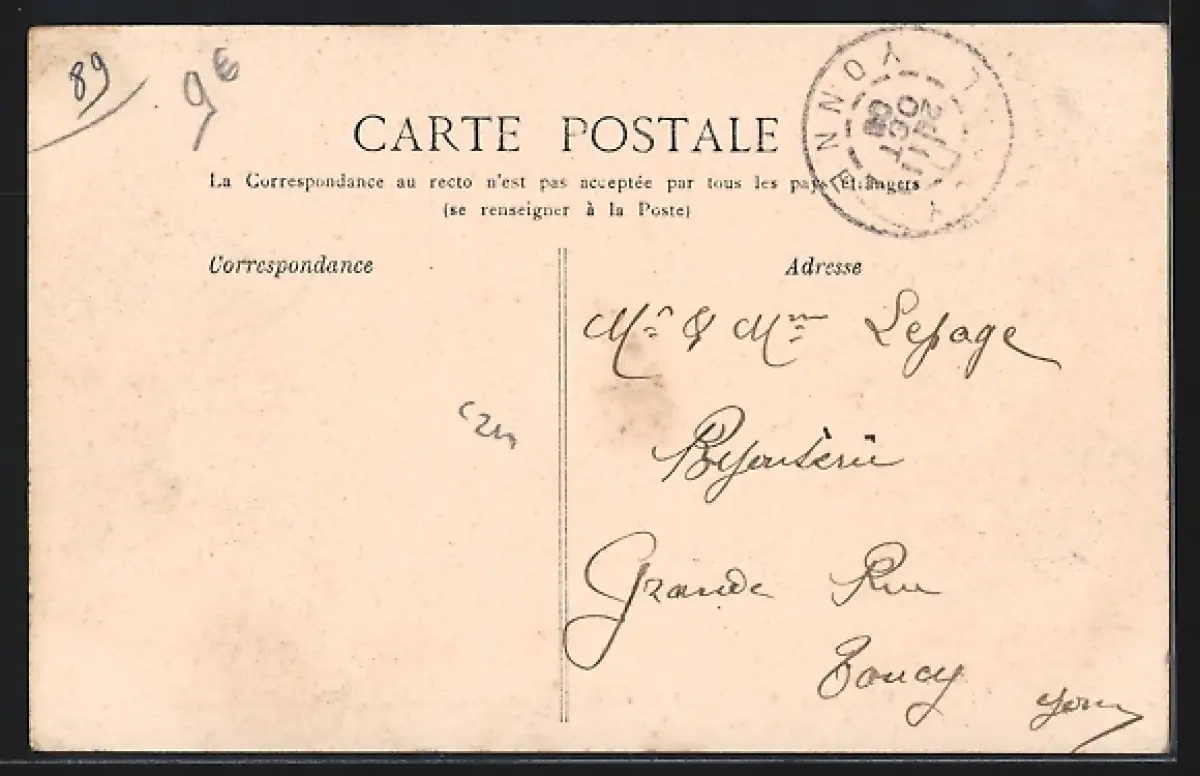 89
9€
CARTE POSTALE
La Correspondance au recto n'est pas acceptée par tous les pays étrangers
(se renseigner à la Poste)
YONNE
OCT
Correspondance
Adresse
Mr & Mme Lepage
Bijouterie
Grande Rue
Toucy
Yonne